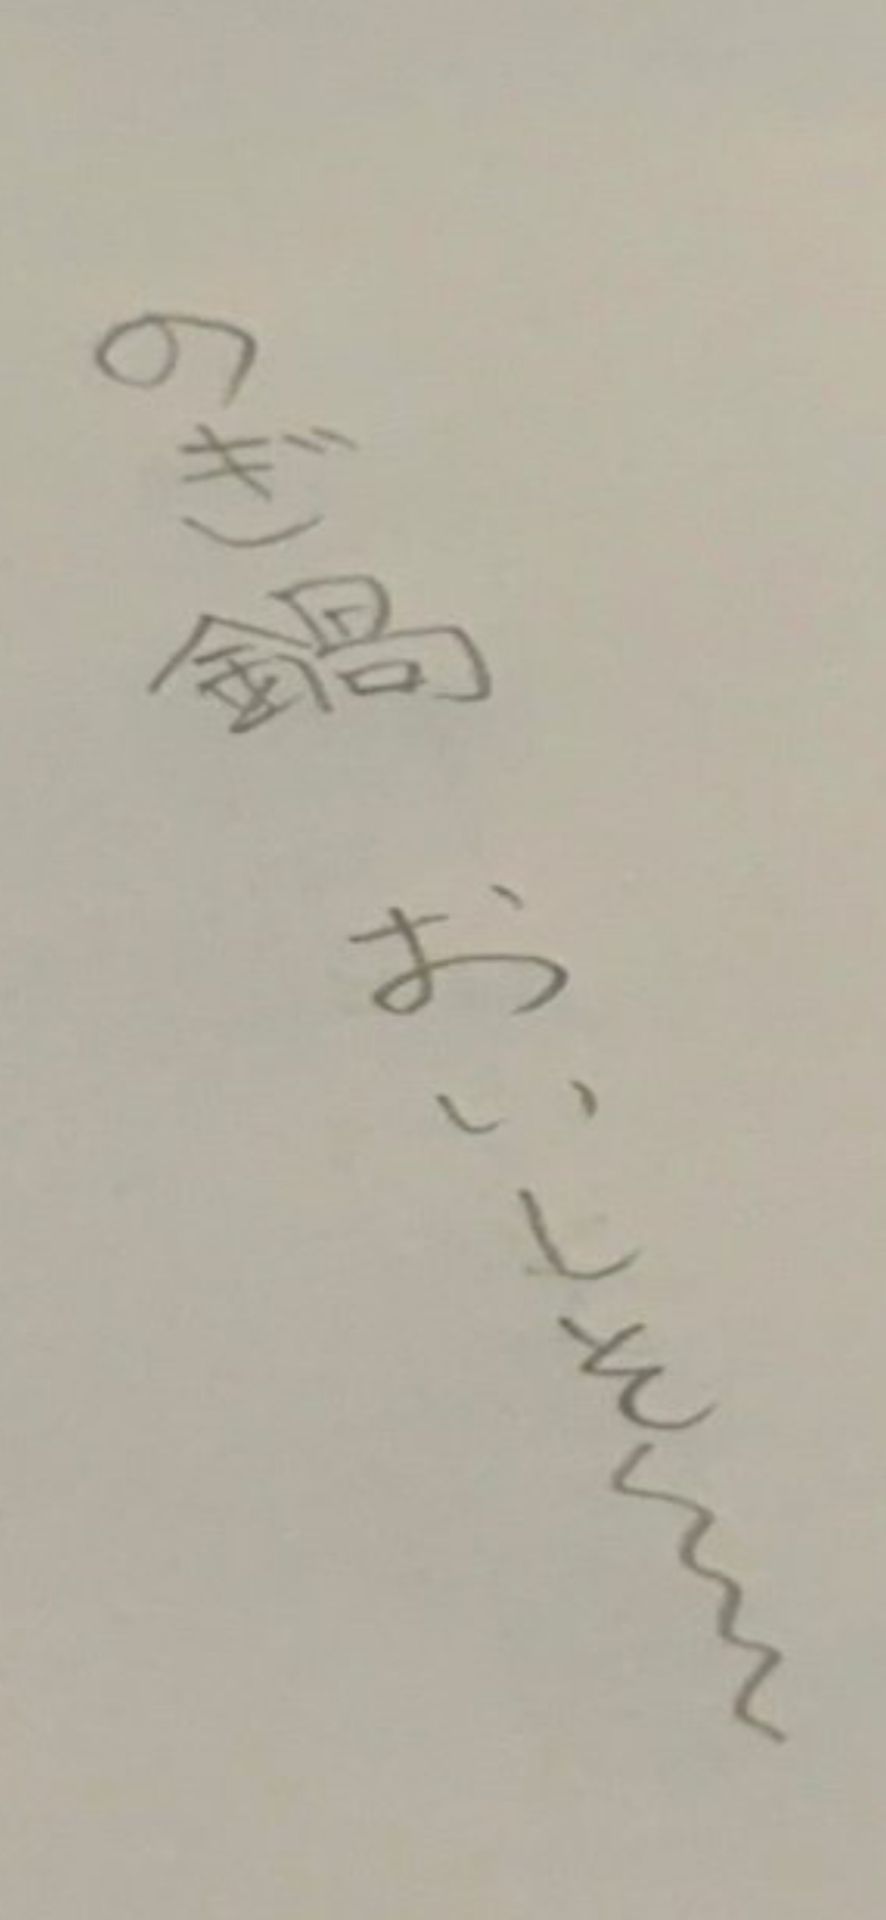 のぎ鍋 おいしそ〜〜